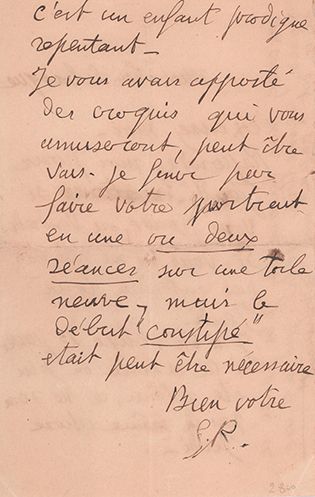 c'est un enfant prodigue
repentant_
Je vous avais apporté
des croquis qui vous
amuseront, peut être
vais-je finir par
faire votre portrait
en une ou deux
séances sur une toile
neuve_ mais le
début "constipé"
etait peut être nécessaire
Bien votre
G.R.
280